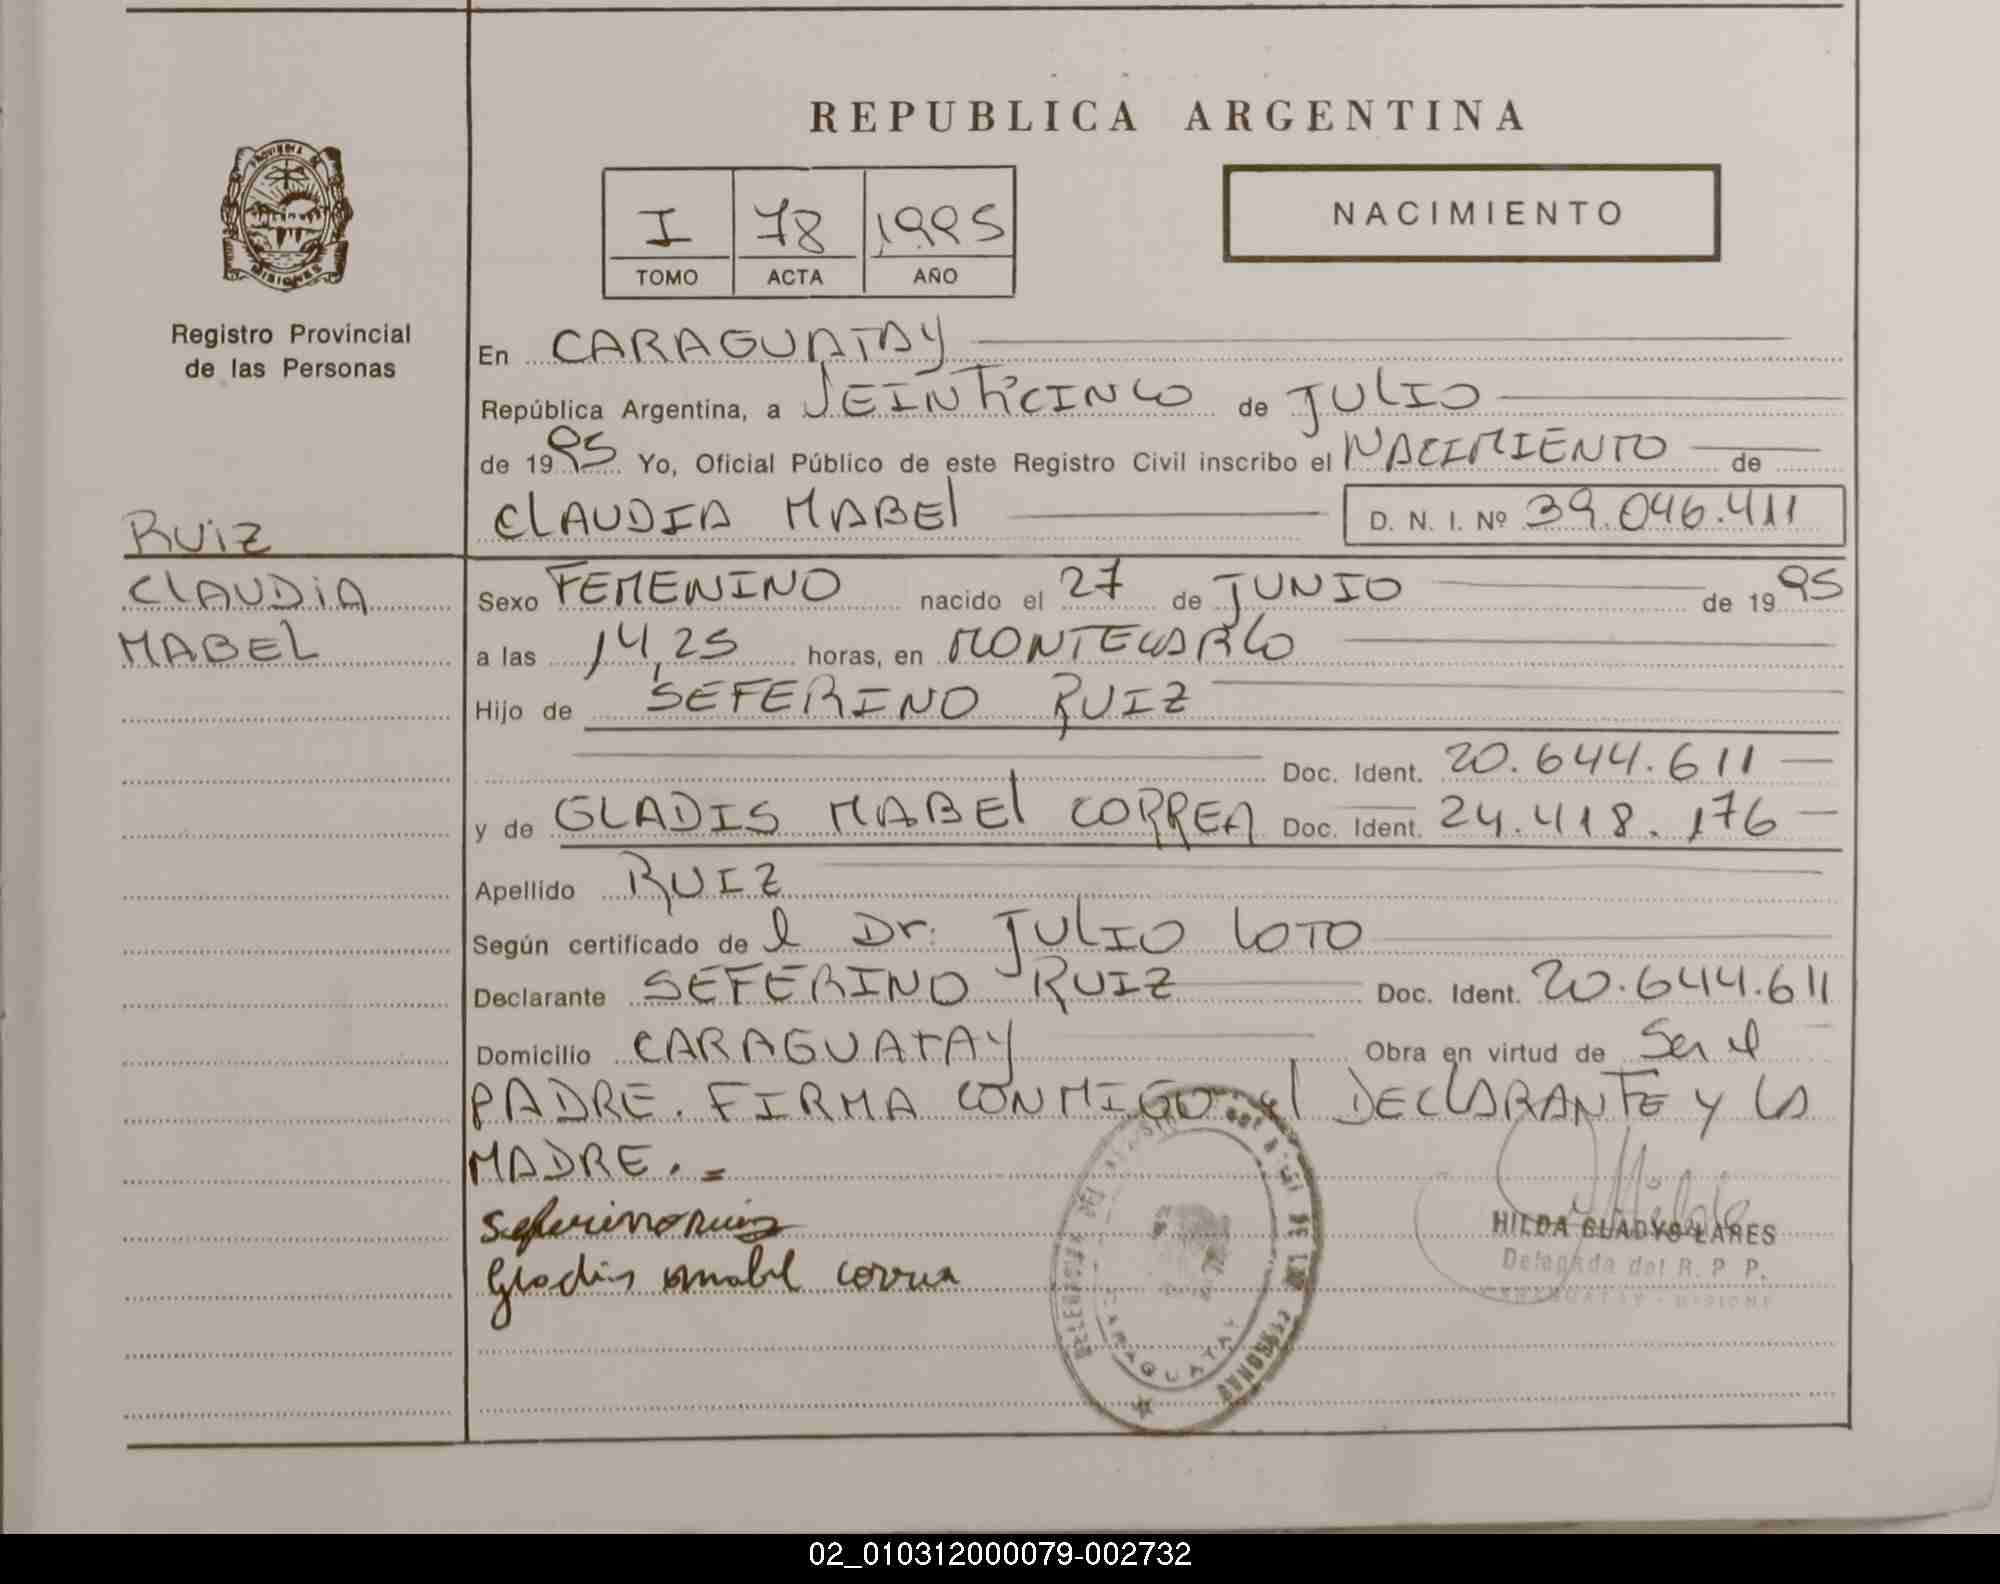 REPUBLICA ARGENTINA
PROVINCIA DE
MISIONES
Registro Provincial
de las Personas
I 78 1995
TOMO ACTA AÑO
NACIMIENTO
En CARAGUATAY
República Argentina, a VEINTICINCO de JULIO
de 1995 Yo, Oficial Público de este Registro Civil inscribo el NACIMIENTO de
CLAUDIA MABEL D. N. I. Nº 39.046.411
RUIZ
CLAUDIA
MABEL
Sexo FEMENINO nacido el 27 de JUNIO de 1995
a las 14,25 horas, en MONTECARLO
Hijo de SEFERINO RUIZ
Doc. Ident. 20.644.611
y de GLADIS MABEL CORREA Doc. Ident. 24.418.176
Apellido RUIZ
Según certificado de l Dr. JULIO LOTO
Declarante SEFERINO RUIZ Doc. Ident. 20.644.611
Domicilio CARAGUATAY Obra en virtud de Ser el
PADRE. FIRMA CONMIGO el DECLARANTE Y LA
MADRE.=
Seferino Ruiz
Gladis mabel correa
HILDA GLADYS LARES
Delegada del R. P. P.
CARAGUATAY
PERSONAS
02_010312000079-002732